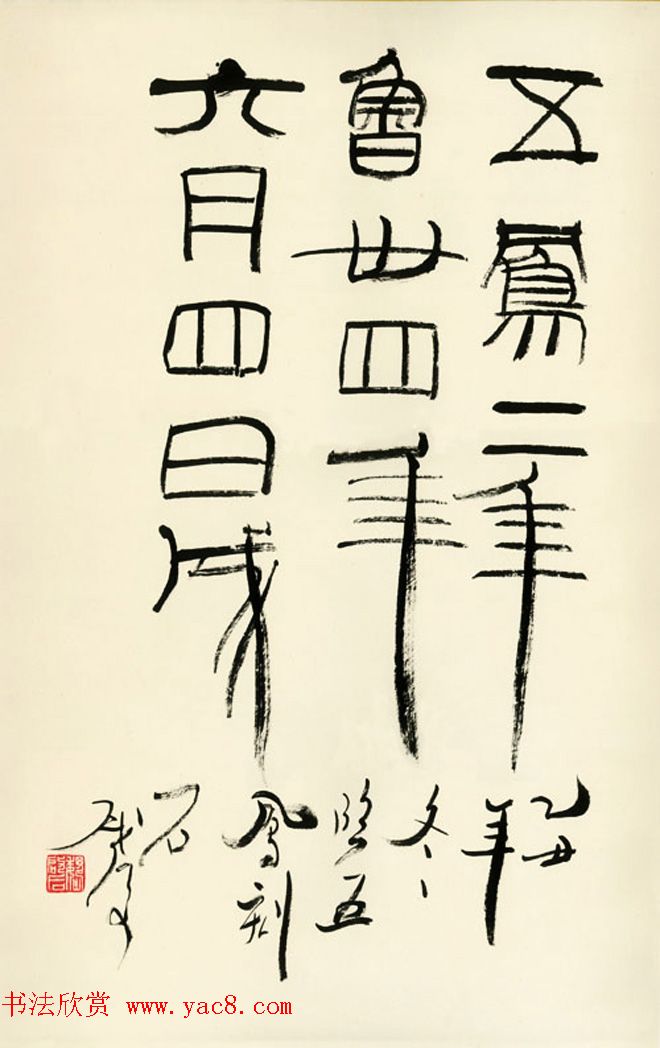 五鳳二年
魯卅四年
六月四日成
乙丑
年
冬
临五
鳳刻
石
书法欣赏 www.yac8.com